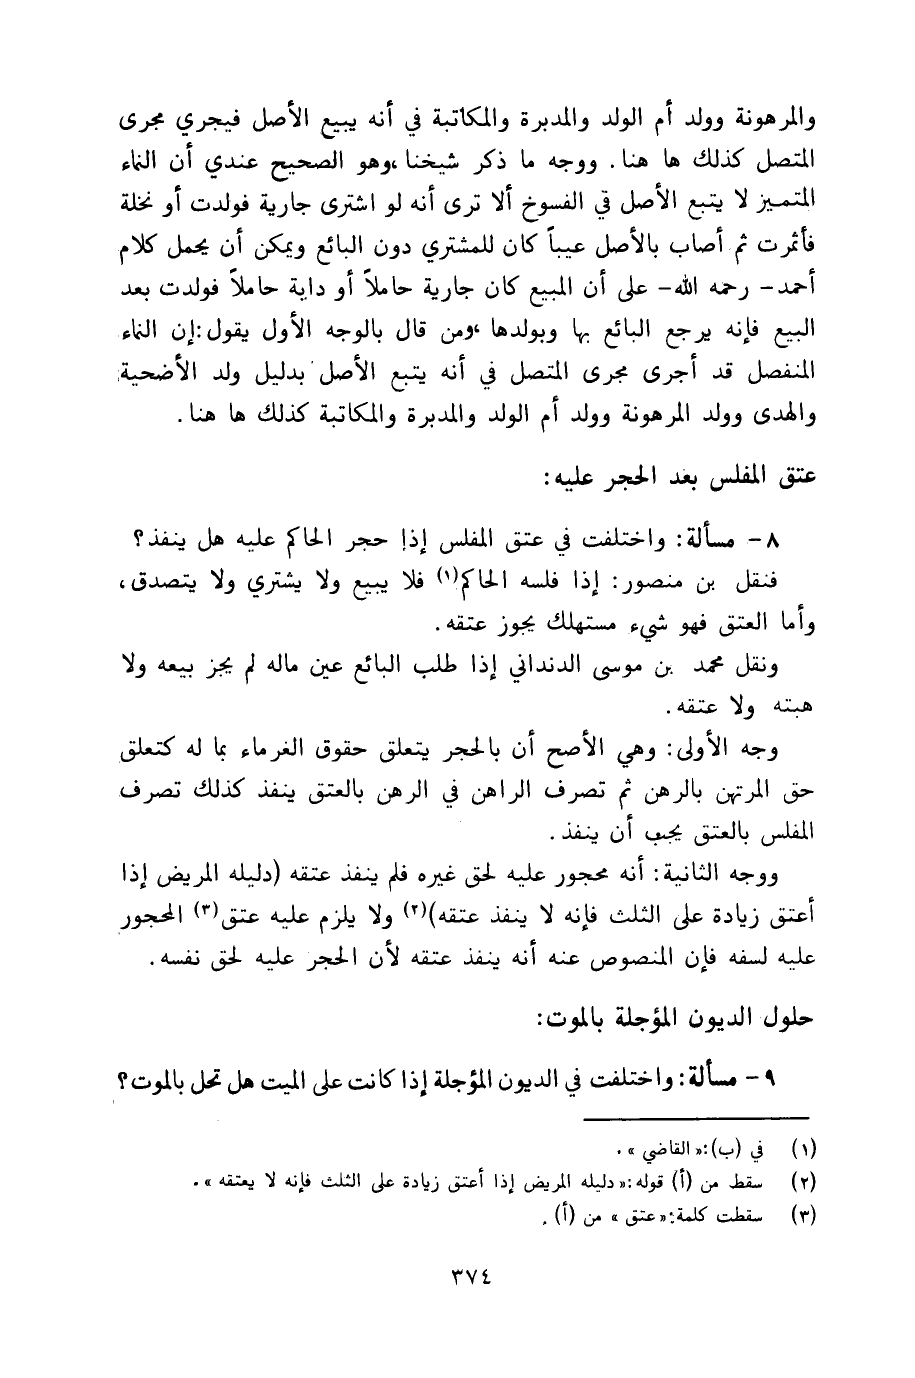 والمرهونة وولد أم الولد والمدبرة والمكاتبة في أنه يبيع الأصل فيجري مجرى
المتصل كذلك ها هنا. ووجه ما ذكر شيخنا ،وهو الصحيح عندي أن النماء
المتميز لا يتبع الأصل في الفسوخ ألا ترى أنه لو اشترى جارية فولدت أو نخلة
فأثمرت ثم أصاب بالأصل عيباً كان للمشتري دون البائع ويمكن أن يحمل كلام
أحمد- رحمه الله- على أن المبيع كان جارية حاملاً أو داية حاملاً فولدت بعد
البيع فإنه يرجع البائع بها وبولدها ،ومن قال بالوجه الأول يقول:إن النماء
المنفصل قد أجرى مجرى المتصل في أنه يتبع الأصل بدليل ولد الأضحية
والهدى وولد المرهونة وولد أم الولد والمدبرة والمكاتبة كذلك ها هنا.
عتق المفلس بعد الحجر عليه:
٨- مسألة: واختلفت في عتق المفلس إذا حجر الحاكم عليه هل ينفذ؟
فنقل بن منصور: إذا فلسه الحاكم(١) فلا يبيع ولا يشتري ولا يتصدق،
وأما العتق فهو شيء مستهلك يجوز عتقه.
ونقل محمد بن موسى الدنداني إذا طلب البائع عين ماله لم يجز بيعه ولا
هبته ولا عتقه.
وجه الأولى: وهي الأصح أن بالحجر يتعلق حقوق الغرماء بما له كتعلق
حق المرتهن بالرهن ثم تصرف الراهن في الرهن بالعتق ينفذ كذلك تصرف
المفلس بالعتق يجب أن ينفذ.
ووجه الثانية: أنه محجور عليه لحق غيره فلم ينفذ عتقه (دليله المريض إذا
أعتق زيادة على الثلث فإنه لا ينفذ عتقه)(٢) ولا يلزم عليه عتق(٣) المحجور
عليه لسفه فإن المنصوص عنه أنه ينفذ عتقه لأن الحجر عليه لحق نفسه.
حلول الديون المؤجلة بالموت:
٩- مسألة: واختلفت في الديون المؤجلة إذا كانت على الميت هل تحل بالموت؟
(١) في (ب):«القاضي».
(٢) سقط من (أ) قوله:«دليله المريض إذا أعتق زيادة على الثلث فإنه لا يعتقه».
(٣) سقطت كلمة:«عتق» من (أ).
٣٧٤